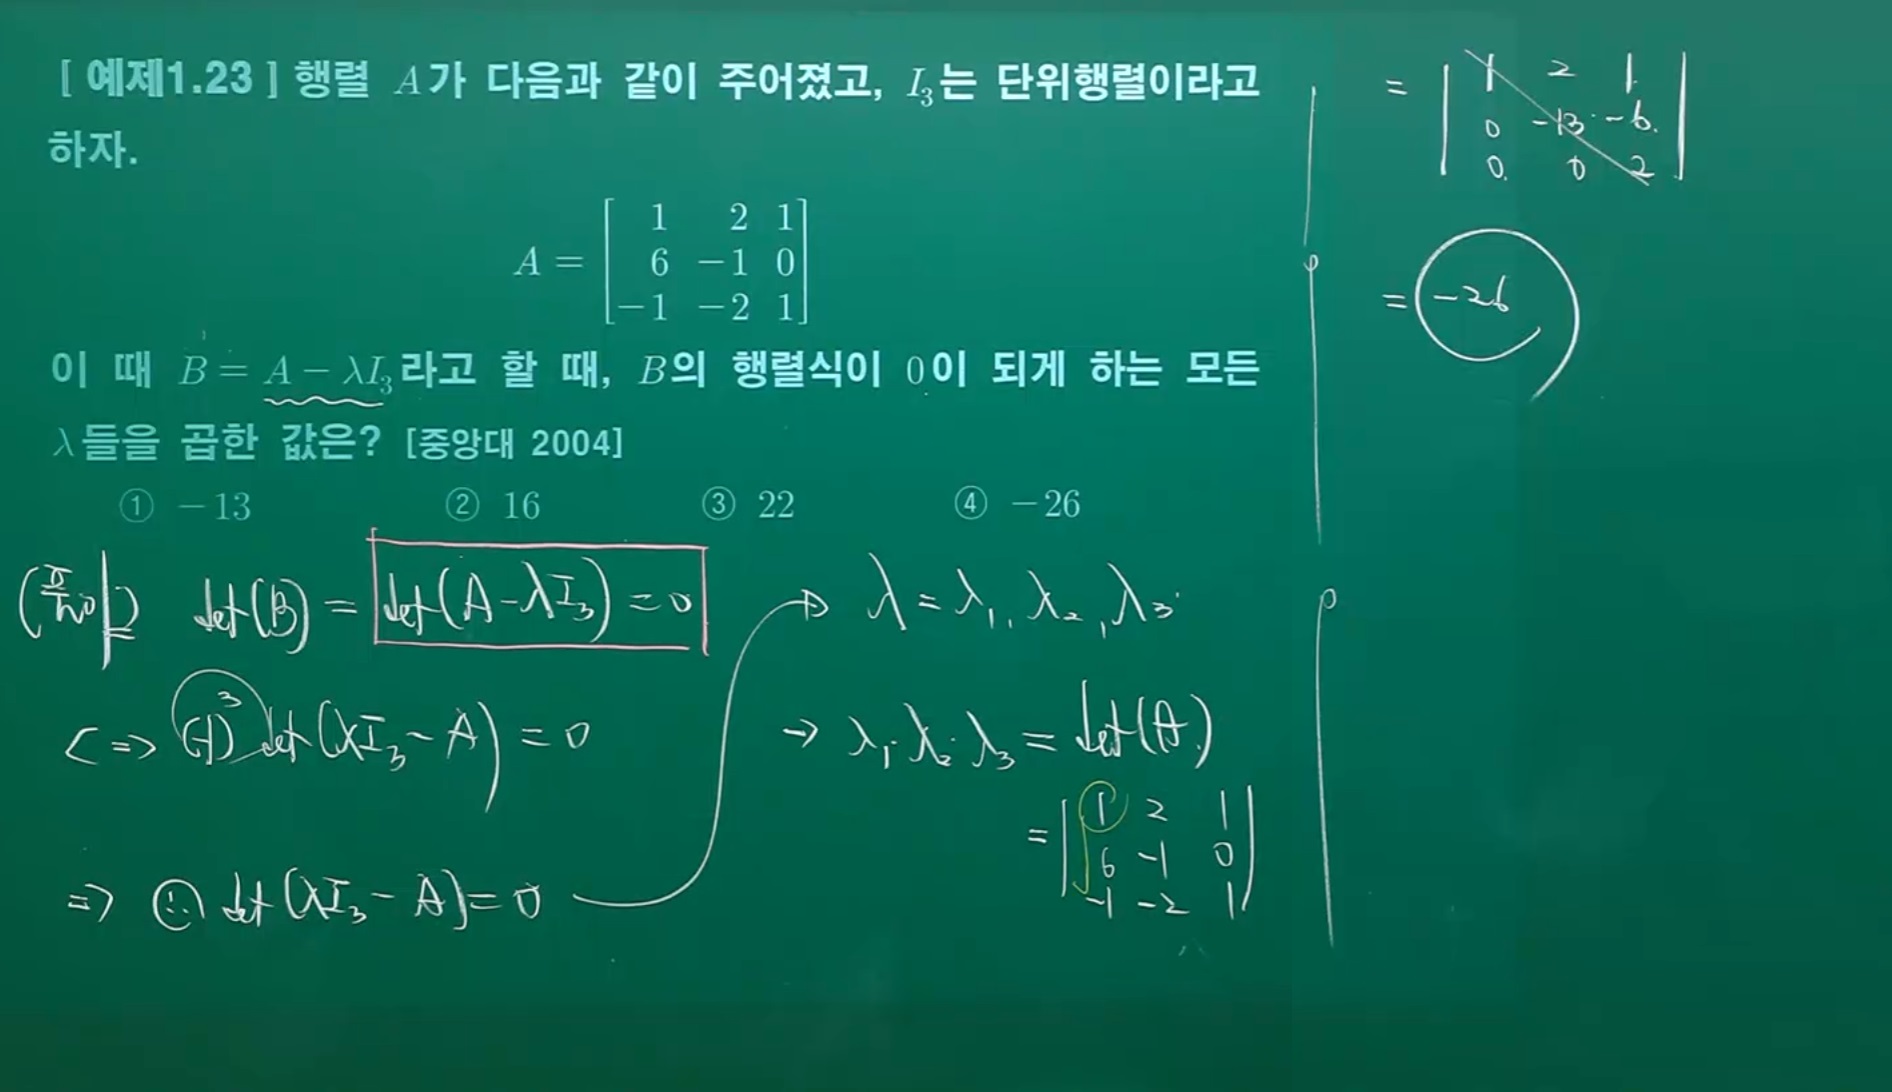 [ 예제1.23 ] 행렬 A가 다음과 같이 주어졌고, I₃는 단위행렬이라고
하자.
A = [ 1 2 1
6 −1 0
−1 −2 1 ]
이 때 B = A − λI₃라고 할 때, B의 행렬식이 0이 되게 하는 모든
λ들을 곱한 값은? [중앙대 2004]
① −13 ② 16 ③ 22 ④ −26
(풀이) det(B) = det(A−λI₃) = 0
<=> (-1)³ det(λI₃ − A) = 0
=> (-) det(λI₃ − A) = 0
→ λ = λ₁, λ₂, λ₃
→ λ₁·λ₂·λ₃ = det(A)
= | 1 2 1
6 −1 0
−1 −2 1 |
= | 1 2 1
0 −13 −6
0 0 2 |
= −26